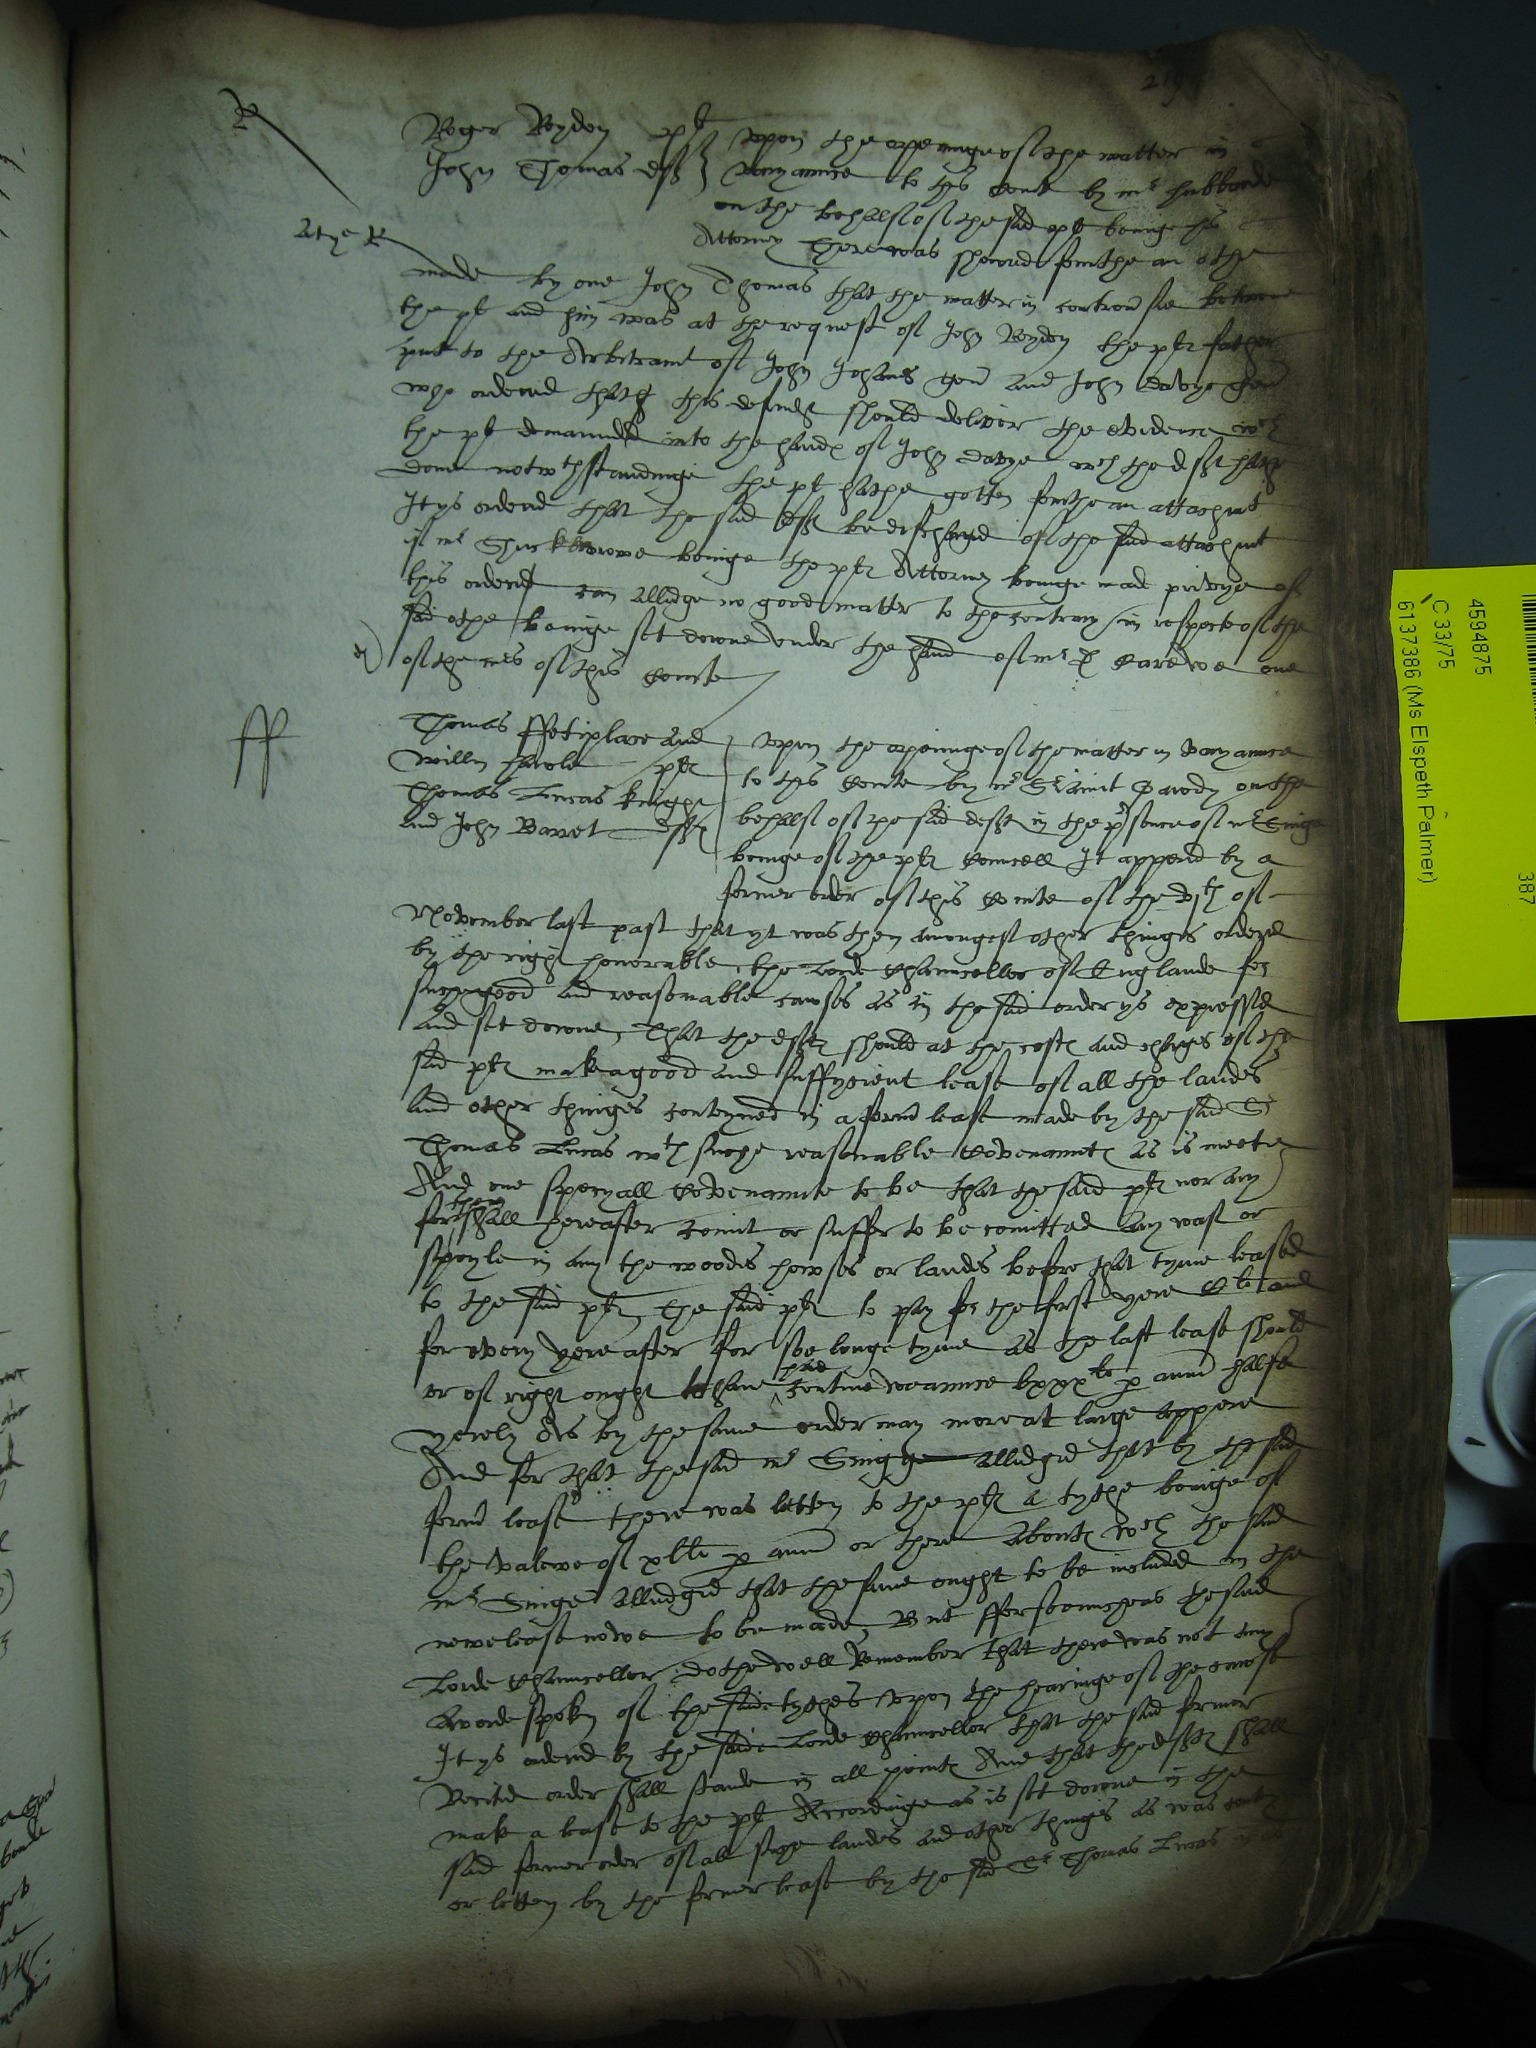 219
R
Roger Roydon pl
John Thomas deft
Upon the openinge of the matter in
varyaunce to this Courte by mr Hubbarde
on the behalf of the said pl beinge his
Attorney There was shewid fourthe an othe
made by one John Thomas that the matter in controv'sie betwene
the pl and him was at the request of John Roydon the pltes father
put to the Arbitramt of John Johnes gen and John Davye gen
who orderid that this defendt should deliver the evidence wch
the pl demaunded into the handes of John Davye wch the deft hathe
done notwthstandinge the pl hathe gotten fourthe an attachmt
It ys orderid that the said deft be dischargid of the said attachmt
if mr beinge the pltes Attorney beinge made privye of
this order can alledge no good matter to the contrary / in respecte of the
said othe beinge set downe under the hand of mr D Carewe one
of the mrs of this Courte
ff
Thomas ffetiplace and
Willm pltes
Thomas Lucas knight
and John Barret deftes
Upon the openinge of the matter in varyaunce
to this Courte by mr S'iaunt on the
behalf of the said deftes in the p'sence of mr Singe
beinge of the pltes Councell It apperid by a
former order of this Courte of the of
November last past that yt was then amongest other thinges orderid
by the right honorable the Lorde Chauncellor of Englande for
suche good and reasonable causes as in the said order ys expressid
and set downe, That the deftes should at the costes and charges of the
said pltes make a good and suffycient lease of all the landes
and other thinges conteyned in a form' lease made by the said Sr
Thomas Lucas wth suche reasonable Covenauntes as is meete
And one specyall Covenaunte to be that the said pltes nor any
for them shall hereafter comit or suffer to be comitted any wast or
spoyle in any the woodes howses or landes before that tyme leased
to the said pltes, the said pltes to pay for the first yere and
for every yere after for soe longe tyme as the last lease should
or of right ought to have had contynewaunce lxxx li p annu halfe
yerely As by the same order may more at large appere
And for that the said mr Singe alledgid that by the said
form' lease there was letten to the pltes a tythe beinge of
the valewe of xl li p annu or there aboutes wch the said
mr Singe alledgid that the same ought to be included in the
newe lease nowe to be made, But fforsomuche as the said
Lorde Chauncellor dothe well Remember that there was not any
worde spoken of the said tythes upon the hearinge of the cawse
It ys orderid by the said Lorde Chauncellor that the said former
Recited order shall stande in all pointes And that the deftes shall
make a lease to the pl Accordinge as is set downe in the
said former order of all suche landes and other thinges as was
or letten by the former lease by the said Sr Thomas Lucas
4594875
C 33/75
6137386 (Ms Elspeth Palmer)
387